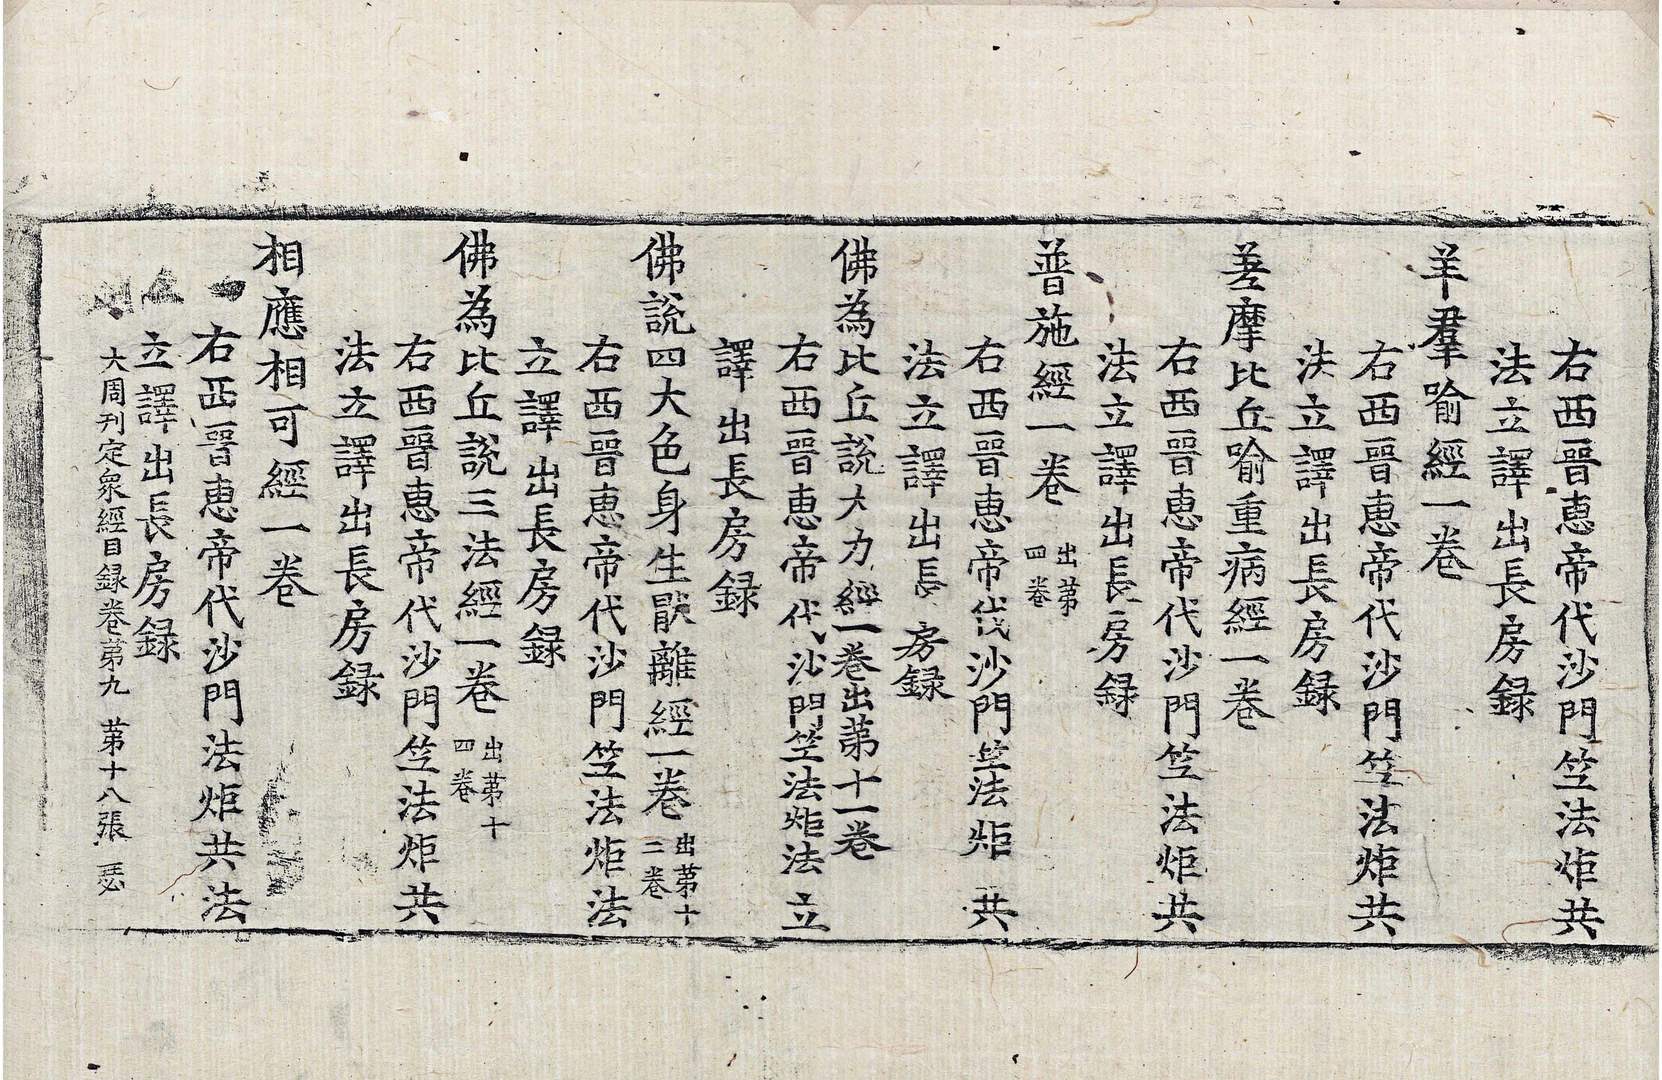 右西晉恵帝代沙門竺法炬共
法立譯出長房録
羊羣喻經一卷
右西晉恵帝代沙門竺法炬共
法立譯出長房録
善摩比丘喻重病經一卷
右西晉恵帝代沙門竺法炬共
法立譯出長房録
普施經一卷 出第四卷
右西晉恵帝代沙門竺法炬共
法立譯出長房録
佛為比丘説大力經一卷出第十一卷
右西晉恵帝代沙門竺法炬法立
譯出長房録
佛説四大色身生猒離經一卷 出第十二卷
右西晉恵帝代沙門竺法炬法
立譯出長房録
佛為比丘説三法經一卷 出第十四卷
右西晉恵帝代沙門竺法炬共
法立譯出長房録
相應相可經一卷
右西晉恵帝代沙門法炬共法
立譯出長房録
大周刊定衆經目録卷第九 第十八張